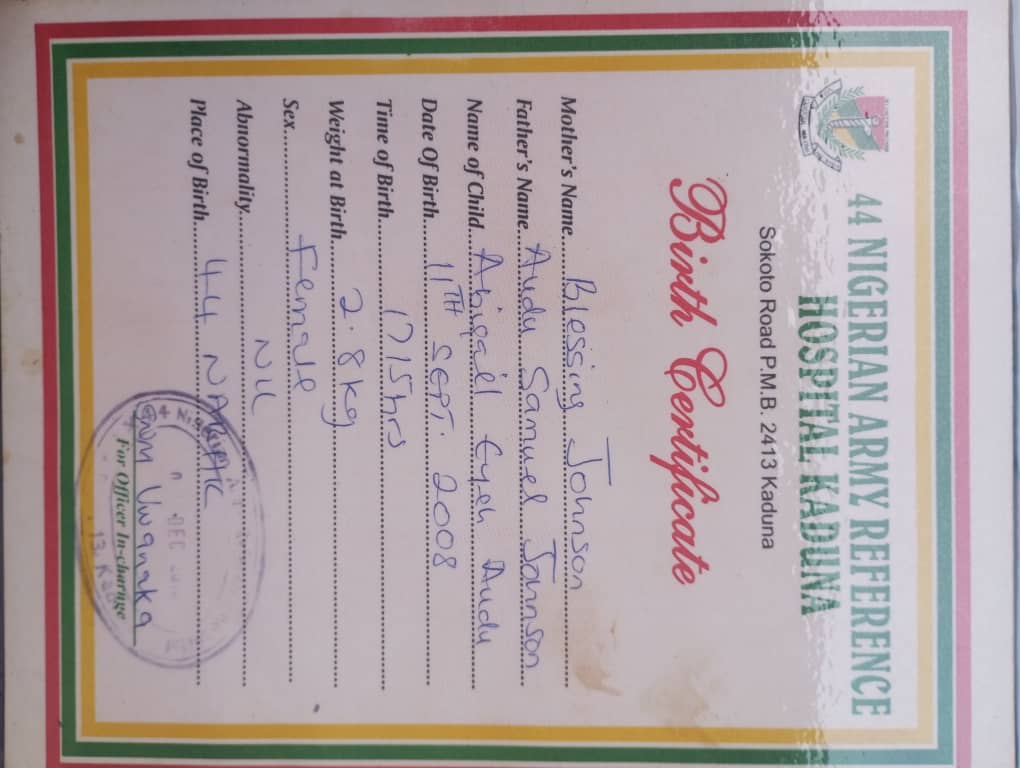 44 NIGERIAN ARMY REFERENCE
HOSPITAL KADUNA
Sokoto Road P.M.B. 2413 Kaduna
Birth Certificate
Mother's Name Blessing Johnson
Father's Name Audu Samuel Johnson
Name of Child Abigail Eyeh Audu
Date Of Birth 11TH SEPT. 2008
Time of Birth 1715hrs
Weight at Birth 2.8kg
Sex Female
Abnormality NIL
Place of Birth 44 NARHK
DEC
Uwanaka
For Officer In-charge